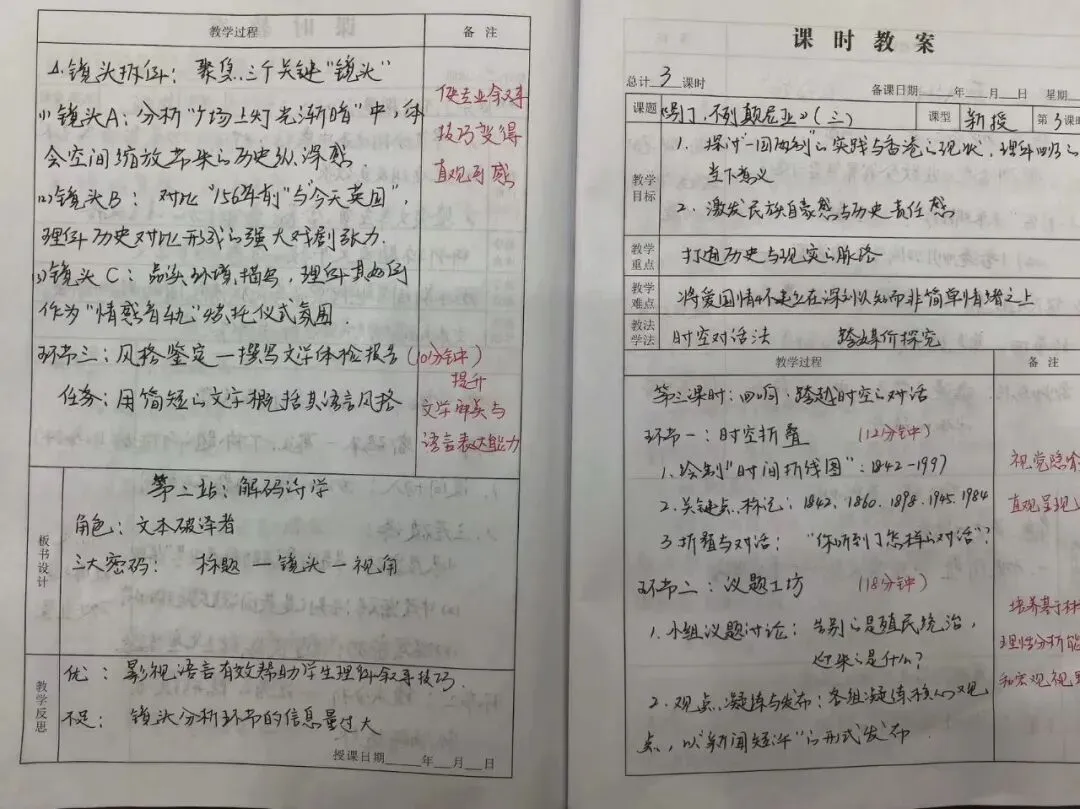 教学过程
备 注
2.镜头拆解：聚焦三个关键"镜头"
(1)镜头A：分析"广场上灯光渐暗"中，体
会空间缩放带来的历史纵深感
(2)镜头B：对比"156年前"与"今天英国"，
理解历史对比形成的强大戏剧张力.
(3)镜头C：品读环境描写，理解其如何
作为"情感音轨"烘托仪式氛围.
环节三：风格鉴定—撰写文学体检报告(10分钟)
任务：用简短的文字概括其语言风格
使专业叙事
技巧变得
直观可感
提升
文学审美与
语言表达能力
板书设计
第二站：解码诗学
角色：文本破译者
三大密码：标题—镜头—视角
教学反思
优：影视语言有效帮助学生理解叙事技巧.
不足：镜头分析环节的信息量过大
授课日期 年 月 日
课 时 教 案
总计3课时
备课日期 年 月 日 星期
课题
《别了，不列颠尼亚》(三)
课型
新授
第3课时
教学目标
1. 探讨"一国两制"的实践与香港的现状，理解回归的
当下意义
2. 激发民族自豪感与历史责任感
教学重点
打通历史与现实的脉络
教学难点
将爱国情怀建立在深刻认知而非简单情绪之上
教法学法
时空对话法 跨媒介探究
教学过程
备 注
第三课时：回响·跨越时空的对话
环节一：时空折叠 (12分钟)
1.绘制"时间折线图"：1842-1997
2.关键点标记：1842、1860、1898、1945、1984
3.折叠与对话："你听到了怎样的对话"？
环节二：议题工坊 (18分钟)
1.小组议题讨论：告别的是殖民统治，
迎来的是什么？
2.观点凝练与发布：各组凝练核心观
点，以"新闻短评"的形式发布.
视觉隐喻
直观呈现
培养基于材
理性分析能
和宏观视野